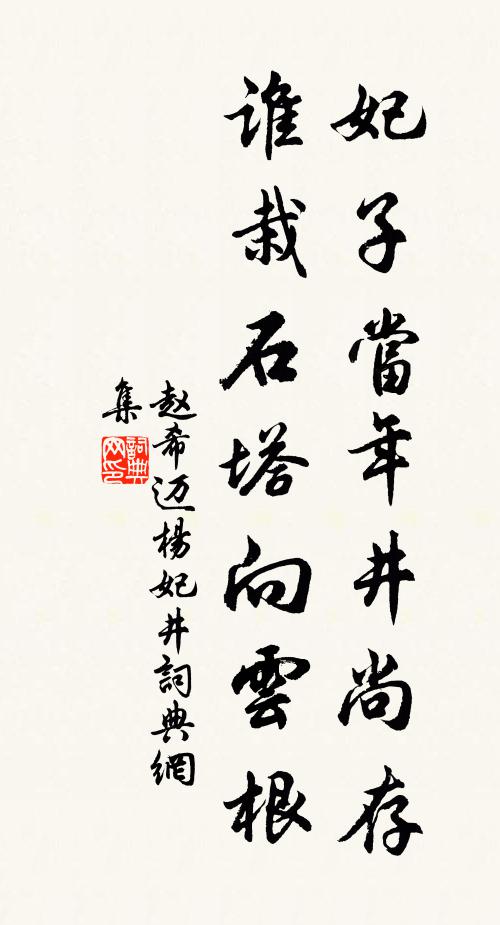 妃子當年井尚存
誰栽石塔向雲根
赵希迈楊妃井詞典網
集
詞典
网印